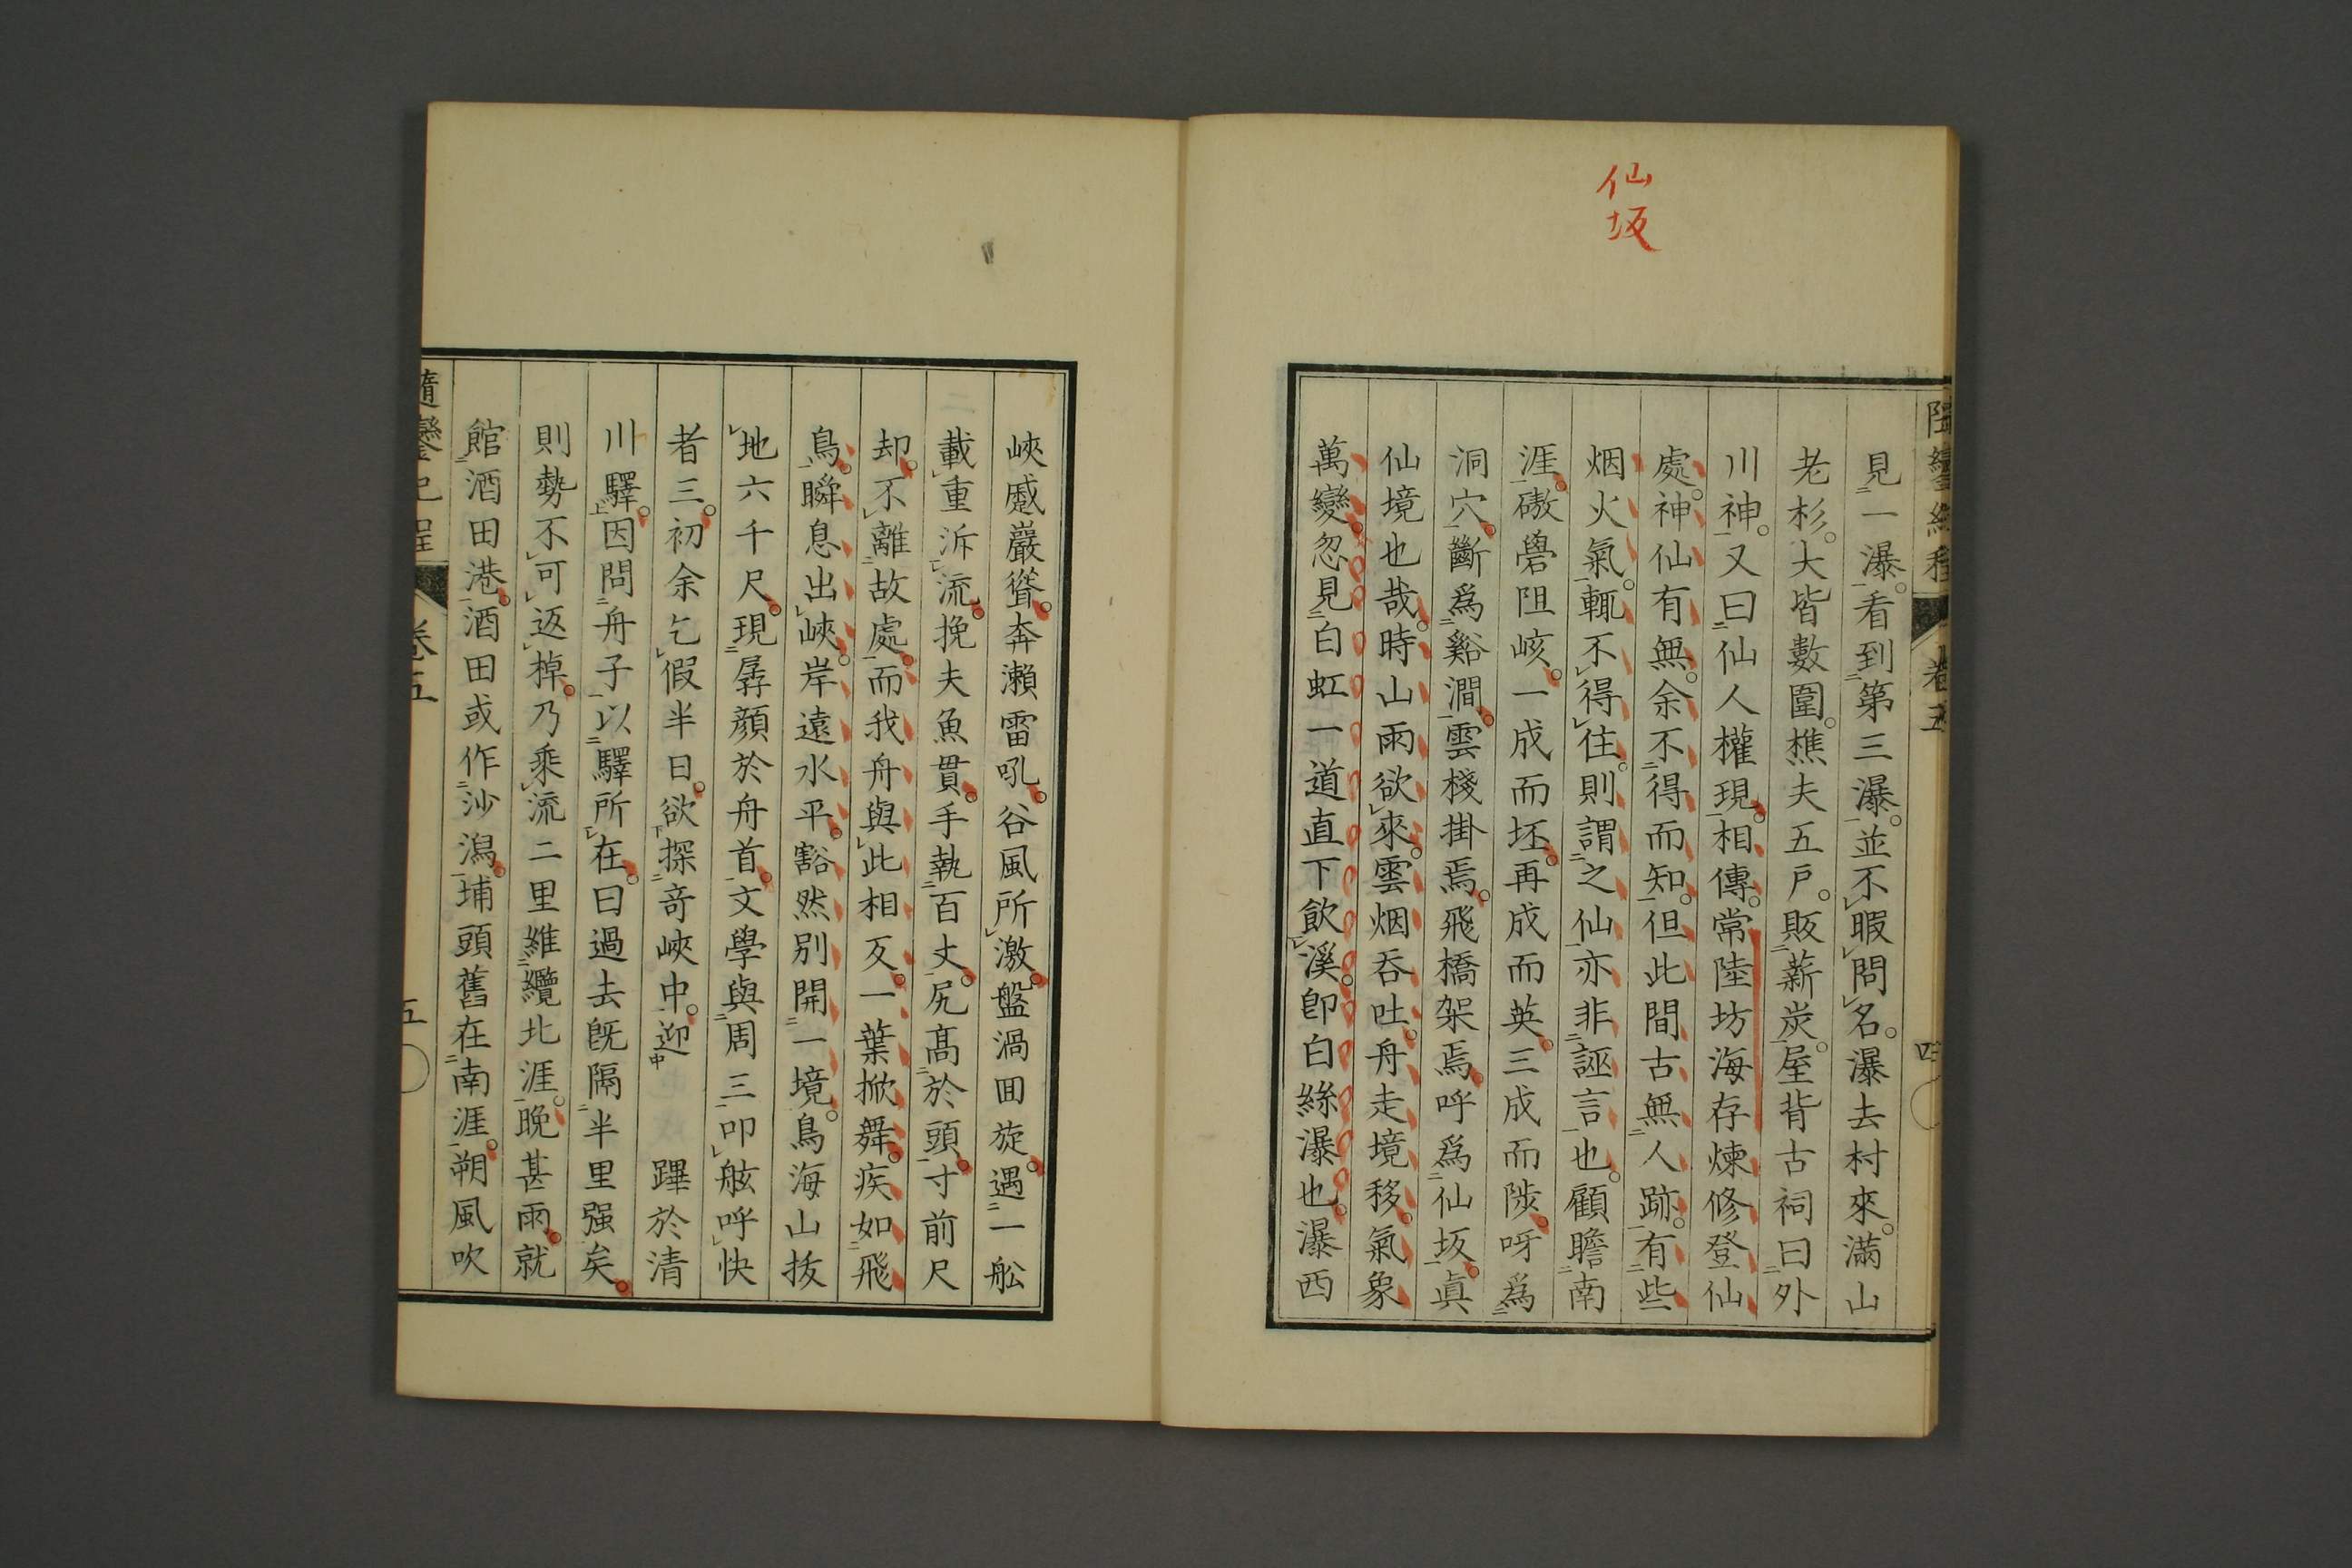 仙坂
見一瀑。看到第三瀑。並不暇問名。瀑去村來。滿山
老杉。大皆數圍。樵夫五戶。販薪炭。屋背古祠曰外
川神。又曰仙人權現。相傳。常陸坊海存煉修登仙
處。神仙有無。余不得而知。但此間古無人跡。有些
烟火氣。輒不得住。則謂之仙亦非誣言也。顧瞻南
涯。磝礐阻峐。一成而坯。再成而英。三成而陟。呀爲
洞穴。斷爲谿澗。雲棧掛焉。飛橋架焉。呼爲仙坂。眞
仙境也哉。時山雨欲來。雲烟吞吐。舟走境移。氣象
萬變。忽見白虹一道直下飲溪。卽白絲瀑也。瀑西
峽蹙巖聳。奔瀨雷吼。谷風所激。盤渦囬旋。遇一舩
載重泝流。挽夫魚貫。手執百丈。尻高於頭。寸前尺
却。不離故處。而我舟與此相反。一葉掀舞。疾如飛
鳥。瞬息出峽。岸遠水平。豁然別開一境。鳥海山拔
地六千尺。現孱顏於舟首。文學與周三叩舷呼快
者三。初余乞假半日。欲探奇峽中。迎　蹕於清
川驛。因問舟子以驛所在。曰過去旣隔半里强矣。
則勢不可返棹。乃乘流二里維纜北涯。晚甚雨。就
館酒田港。酒田或作沙潟。埔頭舊在南涯。朔風吹
卷五
五